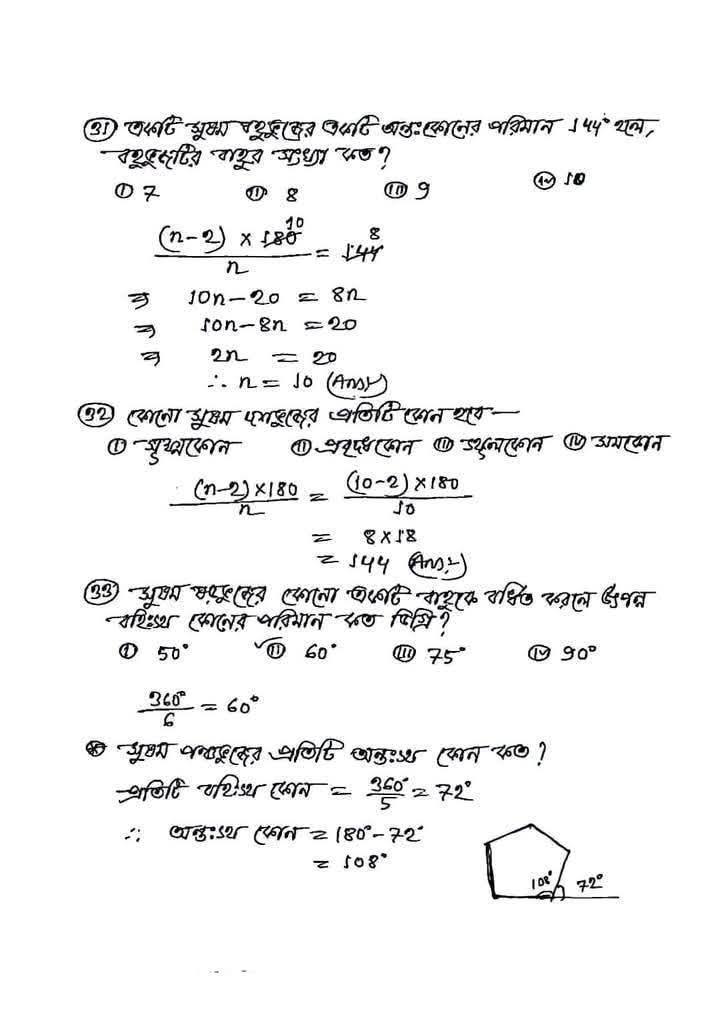 (31) একটি সুষম বহুভুজের একটি অন্তঃকোনের পরিমান 144° হলে,
বহুভুজটির বাহুর সংখ্যা কত?
(i) 7 (ii) 8 (iii) 9 (iv) 10
(n-2) × 180 10 / n = 144 8
⇒ 10n - 20 = 8n
⇒ 10n - 8n = 20
⇒ 2n = 20
∴ n = 10 (Ans:)
(32) কোনো সুষম দশভুজের প্রতিটি কোন হবে —
(i) সূক্ষ্মকোন (ii) প্রবৃদ্ধকোন (iii) স্থূলকোন (iv) সমকোন
(n-2) × 180 / n = (10-2) × 180 / 10
= 8 × 18
= 144 (Ans:)
(33) সুষম ষড়ভুজের কোনো একটি বাহুকে বর্ধিত করলে উৎপন্ন
বহিঃস্থ কোনের পরিমান কত ডিগ্রি?
(i) 50° ✓(ii) 60° (iii) 75° (iv) 90°
360° / 6 = 60°
⊛ সুষম পঞ্চভুজের প্রতিটি অন্তঃস্থ কোন কত?
প্রতিটি বহিঃস্থ কোন = 360° / 5 = 72°
∴ অন্তঃস্থ কোন = 180° - 72°
= 108°
108° 72°